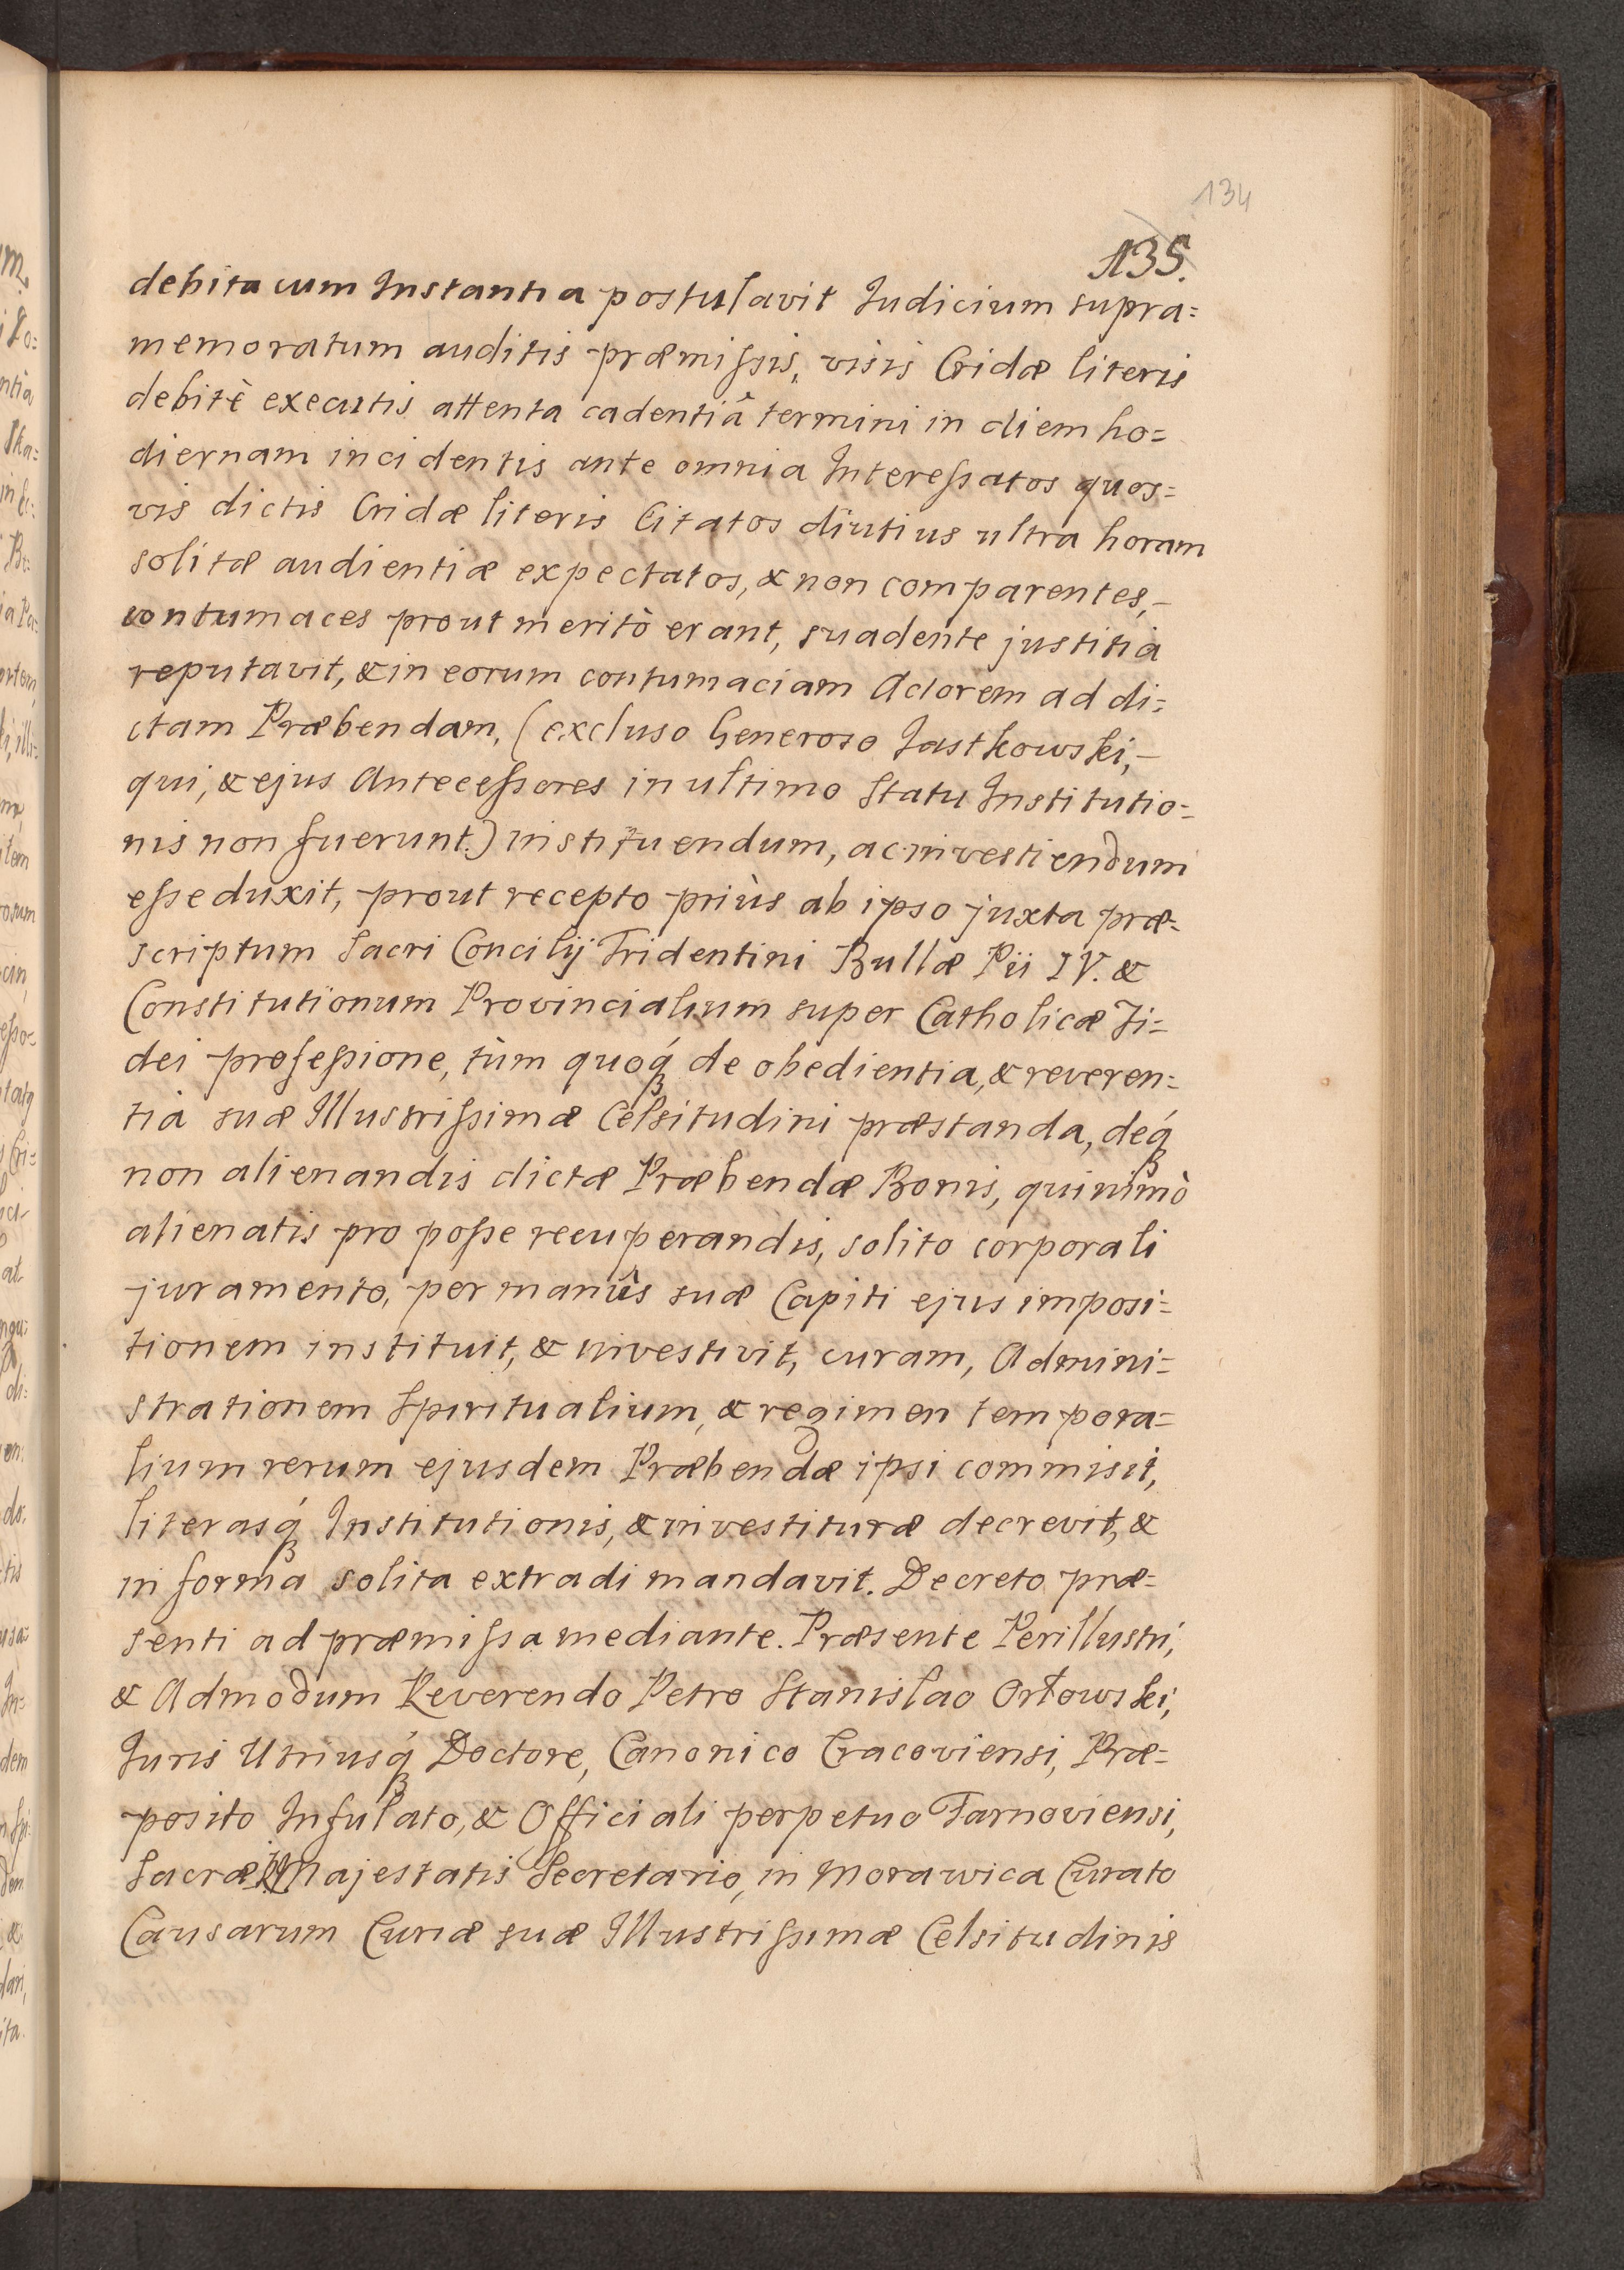 134
135.
debita cum Instantia postulavit Iudicium supra=
memoratum auditis præmissis, visis Cridæ literis
debitè executis attenta cadentiâ termini in diem ho=
diernam incidentis ante omnia Interessatos quos=
vis dictis Cridæ literis Citatos diutius ultra horam
solitæ audientiæ expectatos, & non comparentes,–
contumaces prout meritò erant, suadente justitia
reputavit, & in eorum contumaciam Actorem ad di=
ctam Præbendam, (excluso Generoso Jastkowski,–
qui, & ejus Antecessores in ultimo Statu Institutio=
nis non fuerunt.) instituendum, ac investiendum
esse duxit, prout recepto priùs ab ipso juxta præ=
scriptum Sacri Concilij Tridentini Bullæ Pii IV. &
Constitutionum Provincialium super Catholicæ Fi=
dei professione, tùm quoq́ꝫ de obedientia, & reveren=
tia suæ Illustrissimæ Celsitudini præstanda, deq́ꝫ
non alienandis dictæ Præbendæ Bonis, quinimò
alienatis pro posse recuperandis, solito corporali
juramento, per manûs suæ Capiti ejus imposi=
tionem instituit, & investivit, curam, Admini=
strationem Spiritualium, & regimen tempora=
lium rerum ejusdem Præbendæ ipsi commisit,
literasq́ꝫ Institutionis, & investituræ decrevit, &
in forma solita extradi mandavit. Decreto præ=
senti ad præmissa mediante. Præsente Perillustri,
& Admodum Reverendo Petro Stanislao Orłowski,
Juris Utriusq́ꝫ Doctore, Canonico Cracoviensi, Præ=
posito Infulato, & Officiali perpetuo Tarnoviensi,
Sacræ Majestatis Secretario, in Morawica Curato
Causarum Curiæ suæ Illustrissimæ Celsitudinis